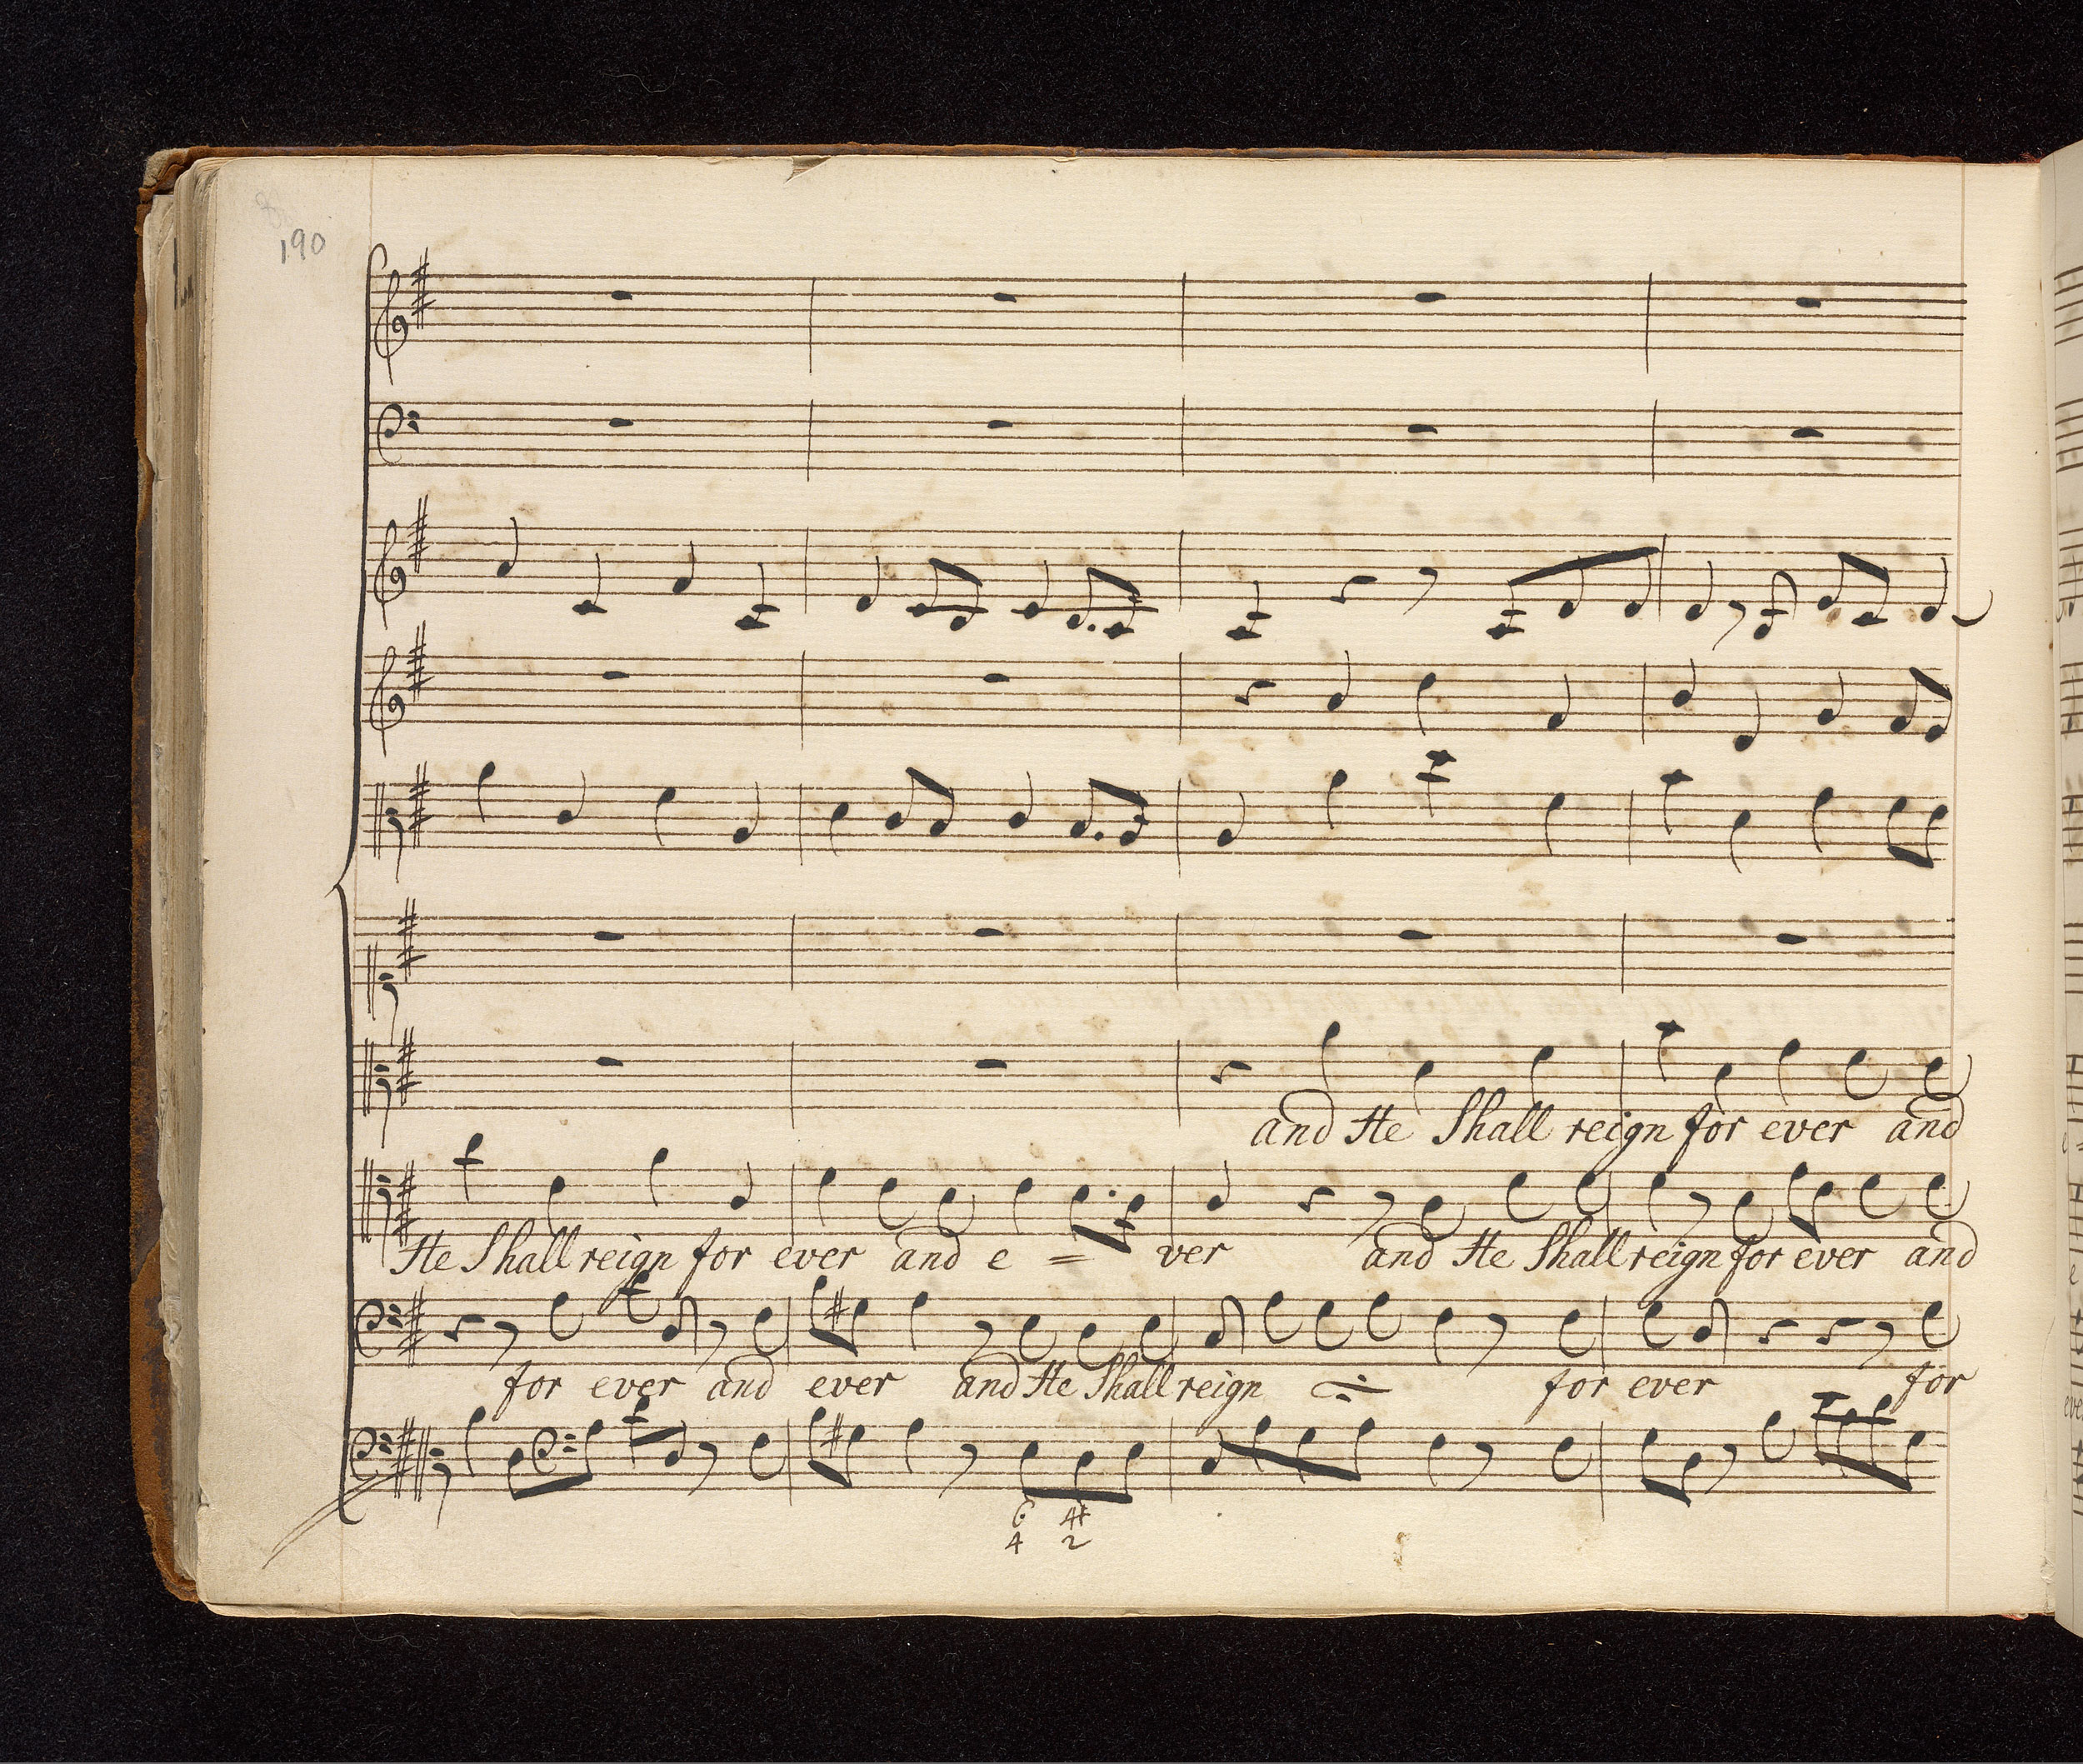 190
and He Shall reign for ever and
He Shall reign for ever and e = ver and He Shall reign for ever and
for ever and ever and He Shall reign for ever for
6 4#
4 2